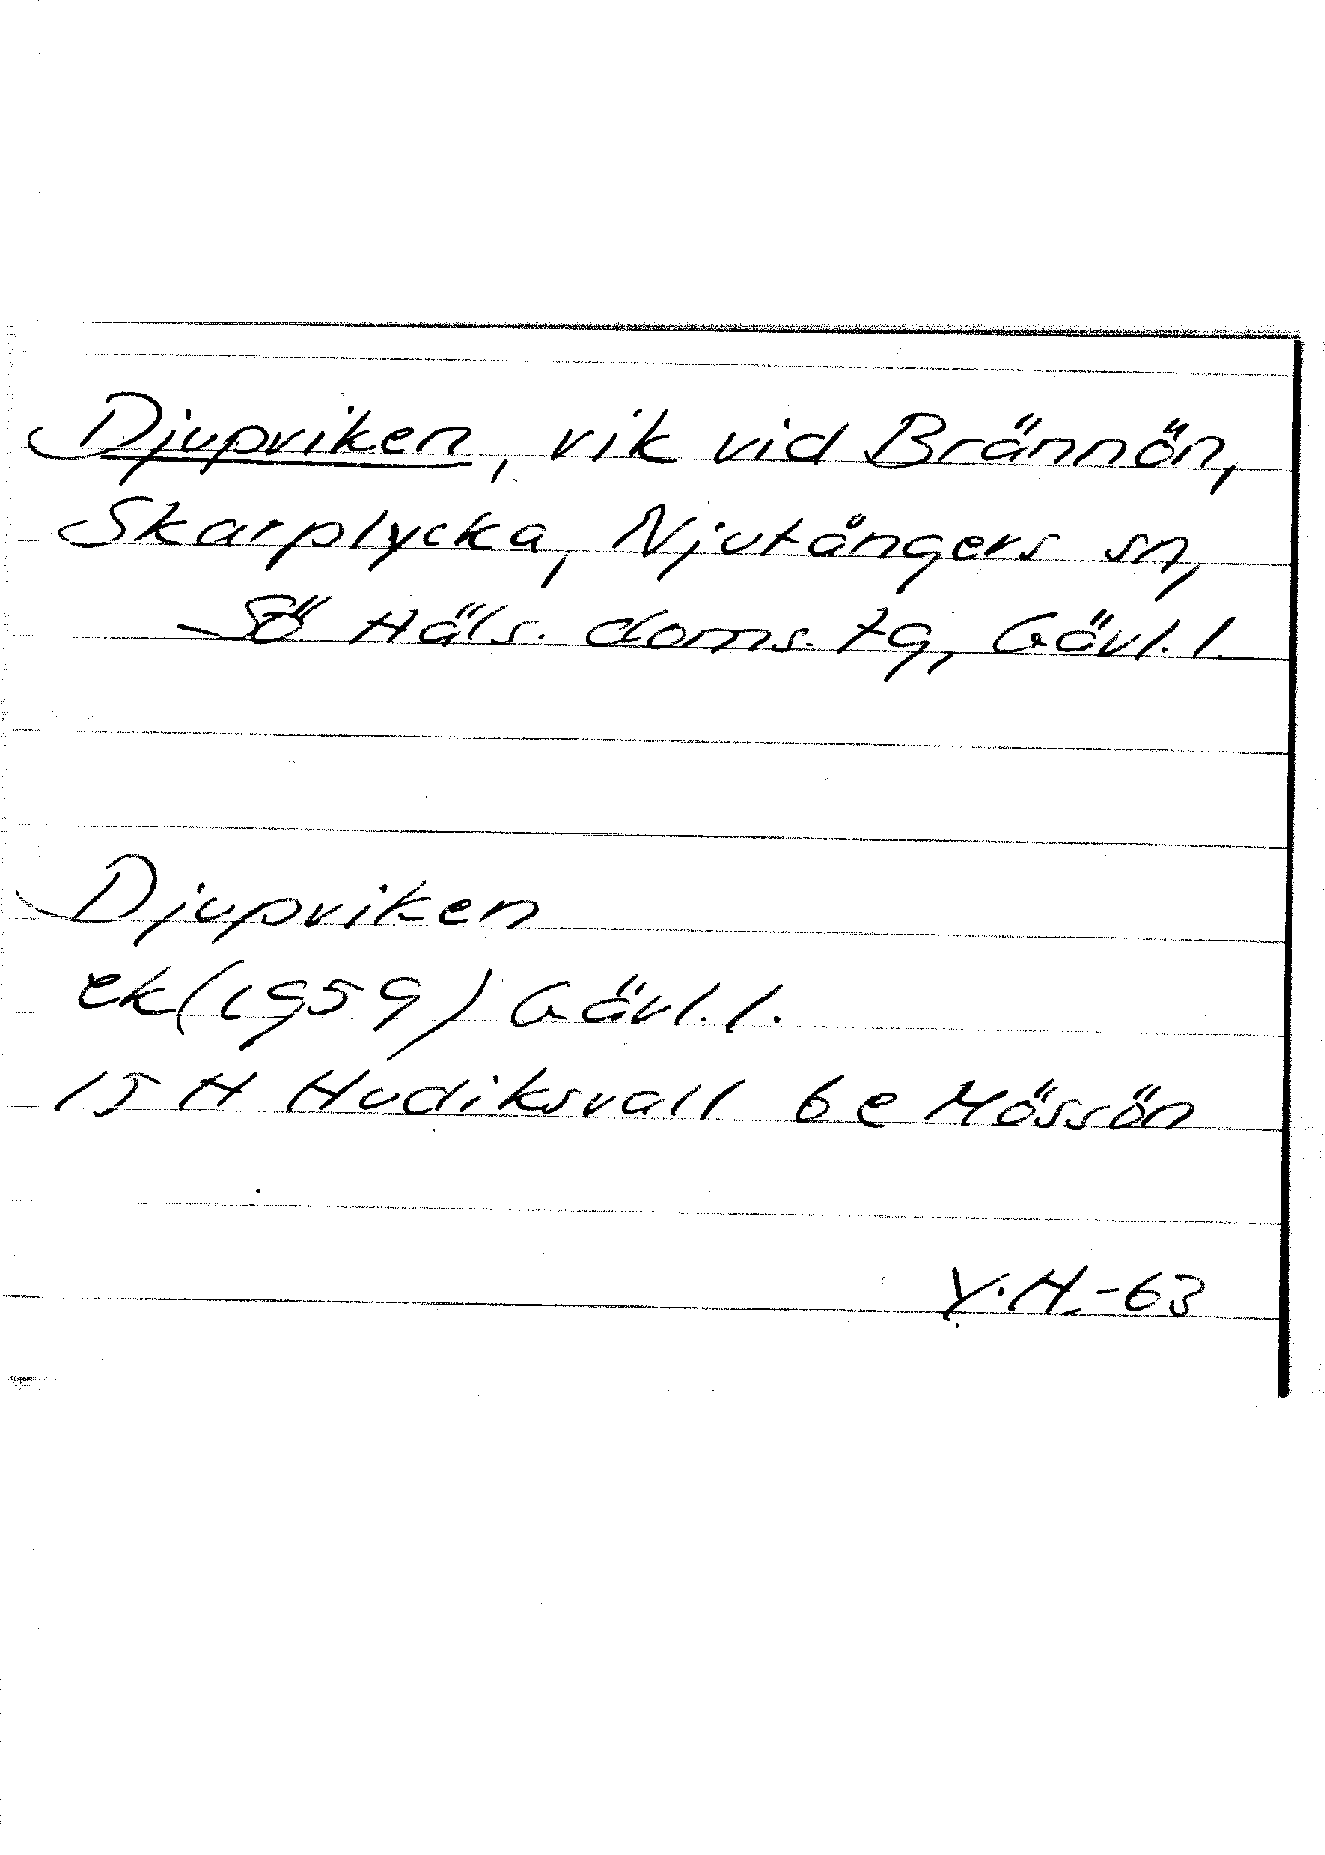 Djupviken, vik vid Brännön,
Skarplycka, Njutångers sn,
Sö Häls. doms. tg, Gävl. l.
Djupviken
ek (1959) Gävl. l.
15 H Hudiksvall 6 e Mössön
Y.H.-63